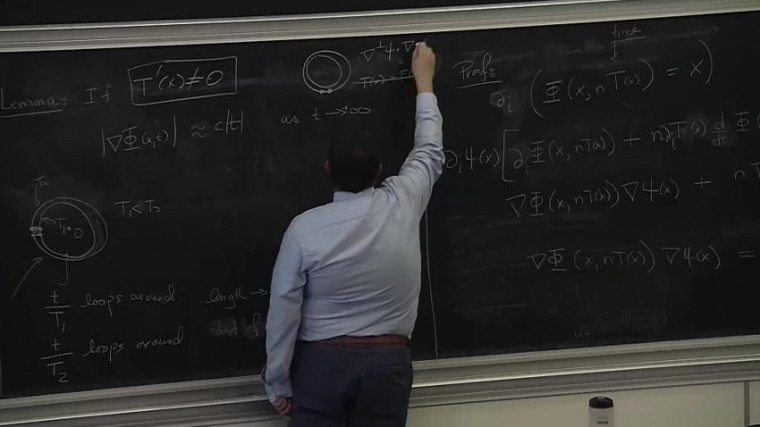 Lemma: If T'(x) ≠ 0
|∇Φ(x,t)| ≈ c|t| as t → ±∞
T₂
T₁
T₁ < T₂
t/T₁ loops around
t/T₂ loops around
length →
∇^⊥ψ · ∇
Proof:
time
∂ᵢ (Φ(x, nT(x)) = x)
∂ᵢψ(x) [∂ᵢΦ(x, nT(x)) + n∂ᵢT(x) d/dt Φ
∇Φ(x, nT(x)) ∇ψ(x) + n ∇
∇Φ(x, nT(x)) ∇ψ(x) =